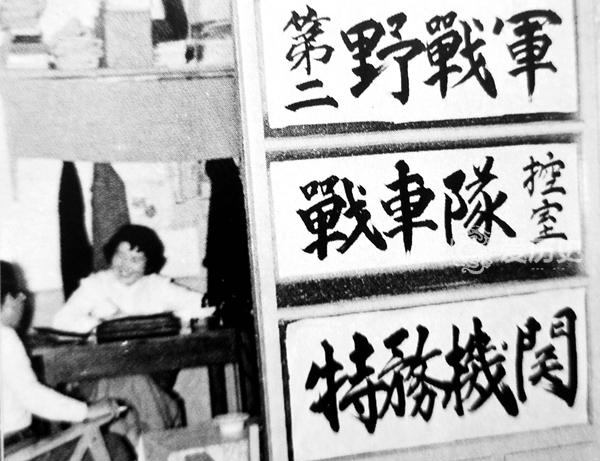 第二 野戰軍
戰車隊 控室
特務機関